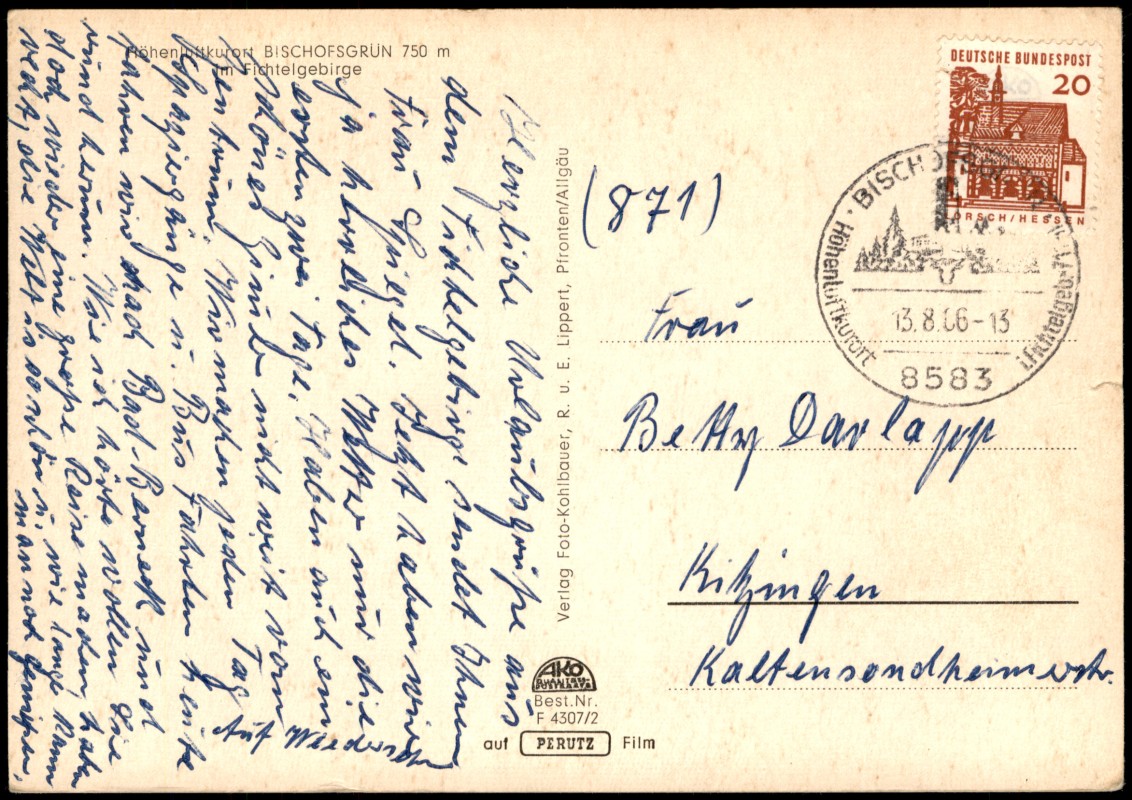 Höhenluftkurort BISCHOFSGRÜN 750 m
im Fichtelgebirge
Herzliche Urlaubsgrüße aus
dem Fichtelgebirge sendet Ihnen
Frau Spiegel. Jetzt haben wir
ja herrliches Wetter nur die
ersten zwei Tage. Haben auch ein
schönes Zimmer nicht weit vom
Zentrum. Wir machen jeden Tag
Spaziergänge u. Bus Fahrten heute
fahren wir nach Bad-Berneck und
rund herum. Wie ich hörte wollen Sie
doch wieder eine große Reise machen, haben
recht, die Welt is so schön u. wie lange kann
man noch genießen.
Auf Wiedersehn
Verlag Foto-Kohlbauer, R. u. E. Lippert, Pfronten/Allgäu
AKO
Best.Nr.
F 4307/2
auf PERUTZ Film
DEUTSCHE BUNDESPOST
20
LORSCH/HESSEN
Höhenluftkurort · BISCHOFSGRÜN · i. Fichtelgebirge
13.8.66-13
8583
(871)
Frau
Betty Darlapp
Kitzingen
Kaltensondheimerstr.